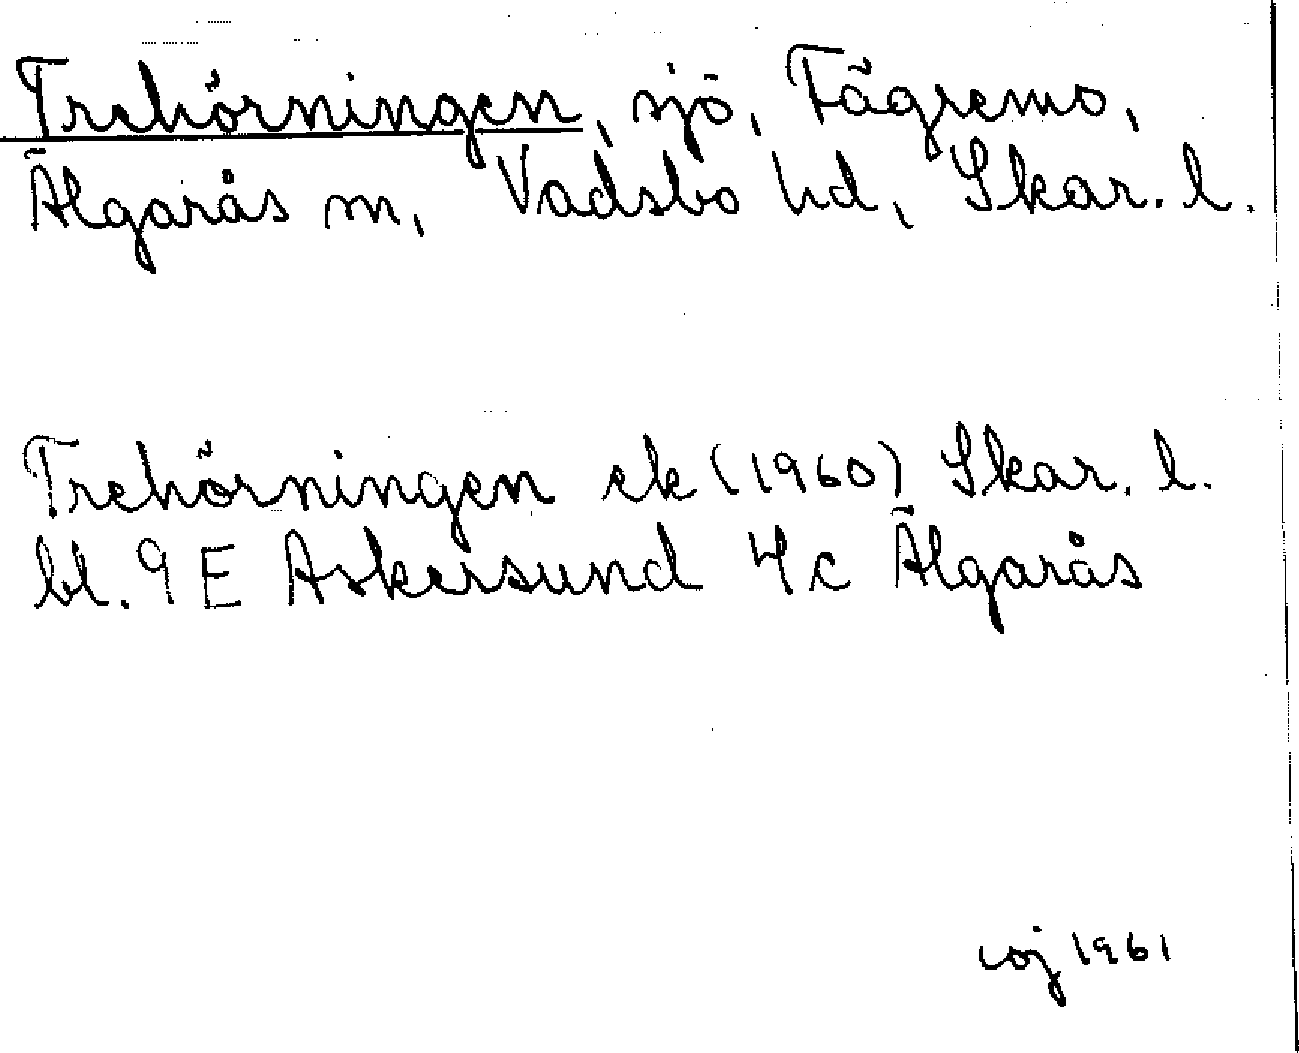 Trehörningen, sjö, Fägremo,
Älgarås sn, Vadsbo hd, Skar. l.
Trehörningen ek (1960) Skar. l.
bl. 9 E Askersund 4c Älgarås
1961